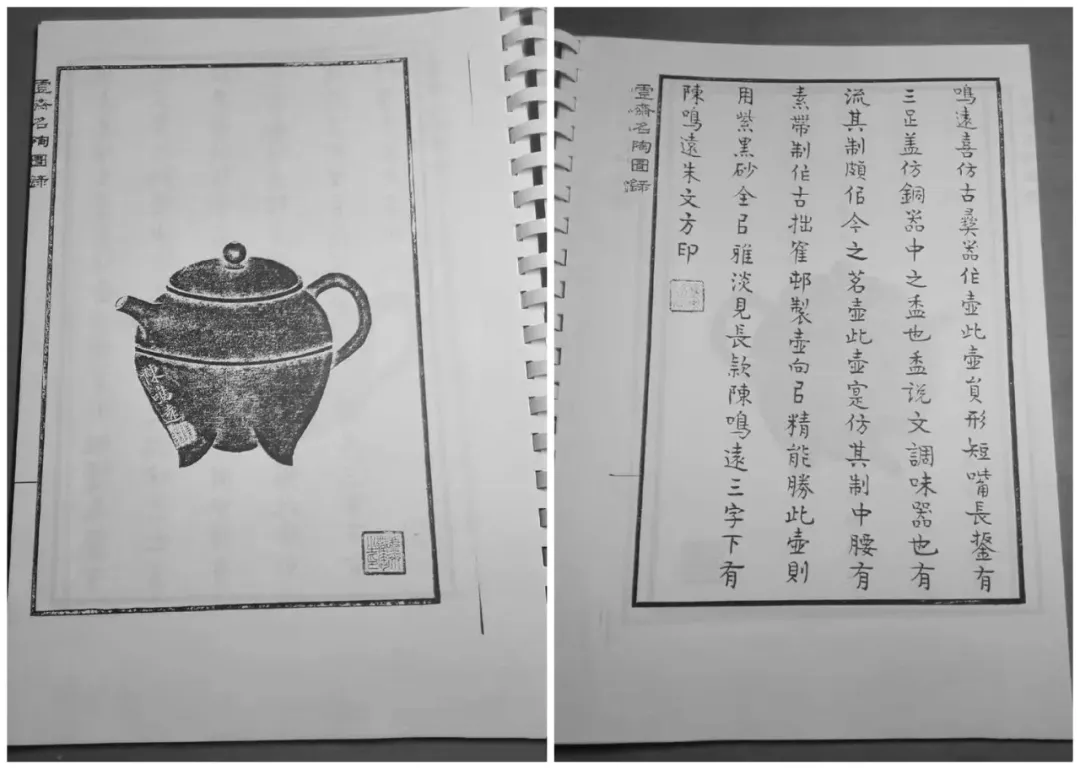 齋名陶圖錄
陳鳴遠
鳴遠喜仿古彝器作壺此壺員形短嘴長鋬有
三足盖仿銅器中之盉也盉說文調味器也有
流其制頗佀今之茗壺此壺寔仿其制中腰有
素帶制作古拙隺邨製壺向㠯精能勝此壺則
用紫黑砂全㠯雅淡見長款陳鳴遠三字下有
陳鳴遠朱文方印
齋名陶圖錄